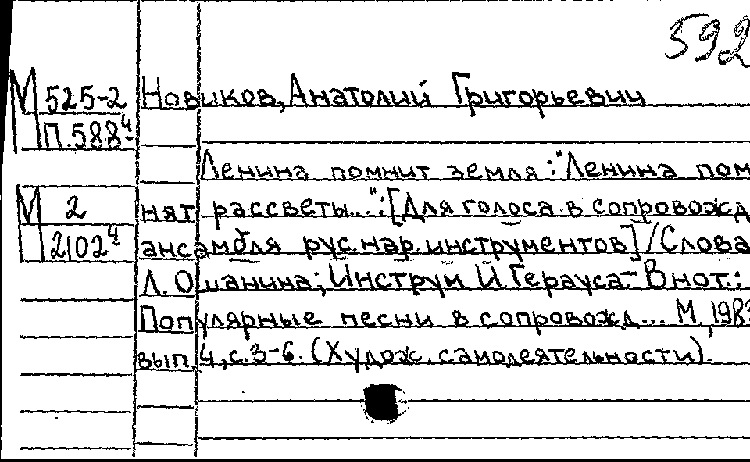 592
М 525-2 Новиков, Анатолий Григорьевич
П.588ч
Ленина помнит земля: "Ленина пом-
М 2 нят рассветы...": [Для голоса в сопровожд
2102ч ансамбля рус.нар.инструментов] / Слова
Л. Ошанина; Инструм И. Герауса.- В нот.:
Популярные песни в сопровожд... М, 198
вып. 4, с. 3-6. (Худож. самодеятельности).